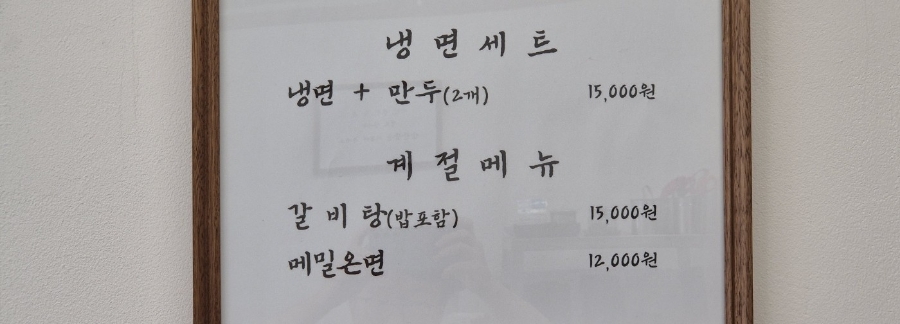 냉면세트
냉면 + 만두(2개) 15,000원
계절메뉴
갈비탕(밥포함) 15,000원
메밀온면 12,000원